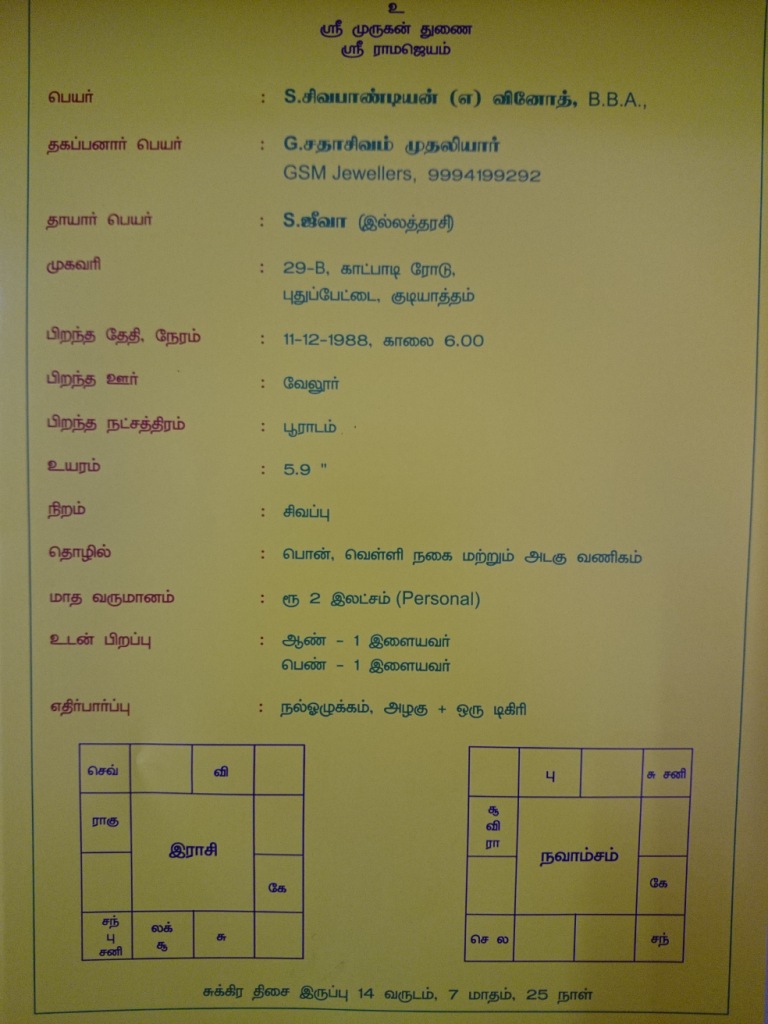 உ
ஸ்ரீ முருகன் துணை
ஸ்ரீ ராமஜெயம்
பெயர் : S.சிவபாண்டியன் (எ) வினோத், B.B.A.,
தகப்பனார் பெயர் : G.சதாசிவம் முதலியார்
GSM Jewellers, 9994199292
தாயார் பெயர் : S.ஜீவா (இல்லத்தரசி)
முகவரி : 29-B, காட்பாடி ரோடு,
புதுப்பேட்டை, குடியாத்தம்
பிறந்த தேதி, நேரம் : 11-12-1988, காலை 6.00
பிறந்த ஊர் : வேலூர்
பிறந்த நட்சத்திரம் : பூராடம்
உயரம் : 5.9 "
நிறம் : சிவப்பு
தொழில் : பொன், வெள்ளி நகை மற்றும் அடகு வணிகம்
மாத வருமானம் : ரூ 2 இலட்சம் (Personal)
உடன் பிறப்பு : ஆண் - 1 இளையவர்
பெண் - 1 இளையவர்
எதிர்பார்ப்பு : நல்ஓழுக்கம், அழகு + ஒரு டிகிரி
செவ் வி
ராகு
இராசி
கே
சந்
பு
சனி
லக்
சூ
சு
பு சு சனி
சூ
வி
ரா
நவாம்சம்
கே
செ ல சந்
சுக்கிர திசை இருப்பு 14 வருடம், 7 மாதம், 25 நாள்